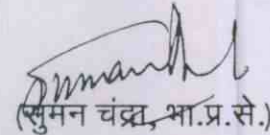 (सुमन चंद्रा, भा.प्र.से.)